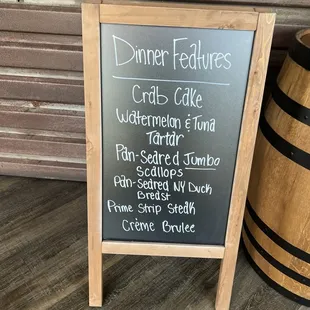 Dinner Features
Crab Cake
Watermelon & Tuna
Tartar
Pan-Seared Jumbo
Scallops
Pan-Seared NY Duck
Breast
Prime Strip Steak
Crème Brulee